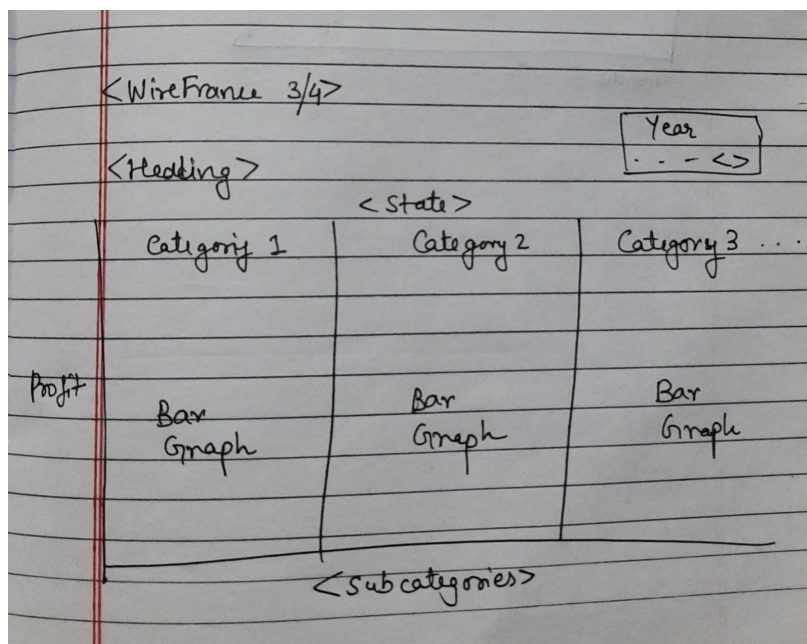 <WireFrame 3/4>
Year
. . - <>
<Hedding>
<State>
Category 1
Category 2
Category 3 ...
Profit
Bar
Graph
Bar
Graph
Bar
Graph
<Subcategories>